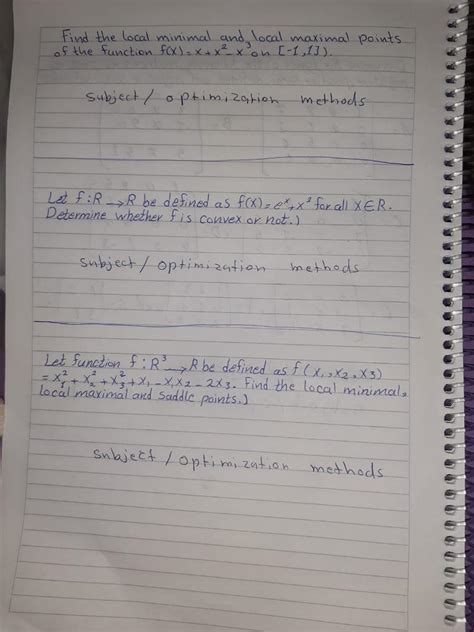 Find the local minimal and local maximal points
of the function f(x)=x+x²-x³ on [-1,1]).
subject/ optimization methods
Let f:R→R be defined as f(x)=eˣ+x² for all x∈R.
Determine whether f is convex or not.)
subject/ optimization methods
Let function f:R³→R be defined as f(x₁,x₂,x₃)
=x₁²+x₂²+x₃²+x₁-x₁x₂-2x₃. Find the local minimal,
local maximal and saddle points.)
subject/optimization methods